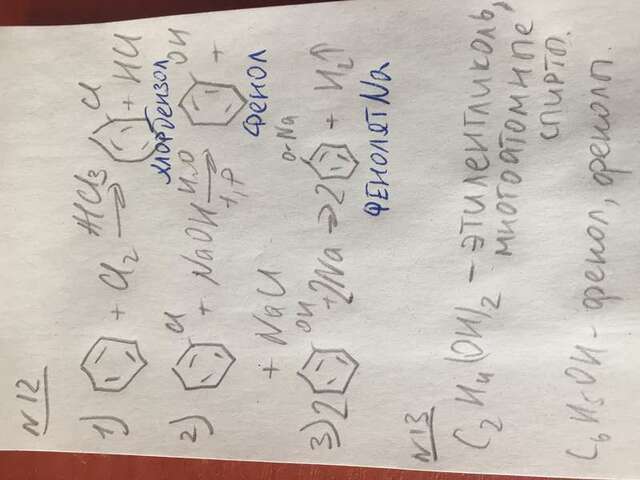 N12
1) + Cl2 AlCl3 → Cl + HCl
хлорбензол
2) Cl + NaOH H2O → t, P OH +
фенол
+ NaCl
3) 2 OH + 2Na → 2 O-Na + H2↑
ФЕНОЛЯТ Na
N13
C2H4(OH)2 – этиленгликоль,
многоатомные
спирты.
C6H5OH – фенол, фенолы.